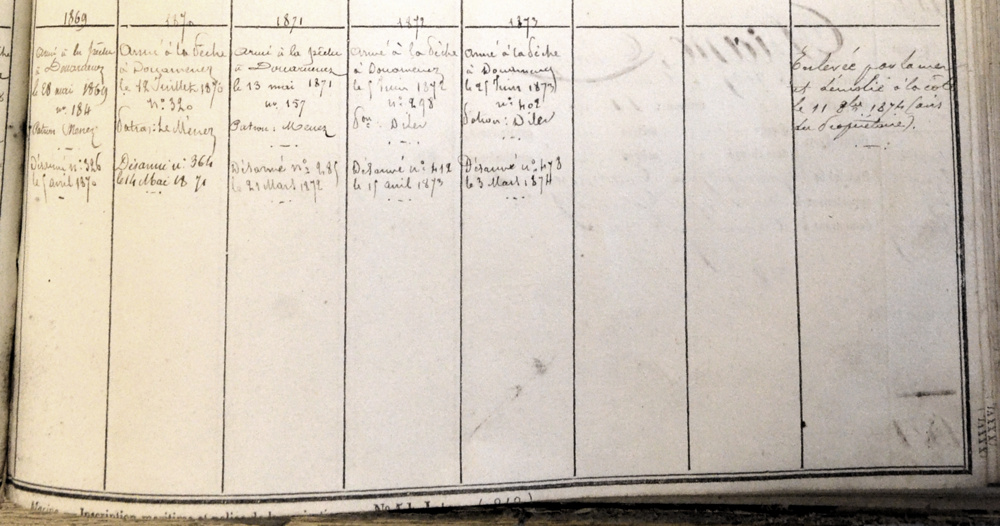 1869
Armé à la pêche
à Douarnenez
le 28 mai 1869
n° 184
Patron Menez
Désarmé n° 326
le 5 avril 1870
1870
Armé à la Pêche
à Douarnenez
le 12 Juillet 1870
N° 320
Patron: Le Menez
Désarmé n° 364
le 14 Mai 1871
1871
Armé à la pêche
à Douarnenez
le 13 mai 1871
n° 157
Patron: Menez
Désarmé n° 285
le 21 Mars 1872
1872
Armé à la Pêche
à Douarnenez
le 5 Juin 1872
n° 298
Pon: Diler
Désarmé n° 412
le 15 avril 1873
1873
Armé à la Pêche
à Douarnenez
le 25 Juin 1873
n° 402
Patron: Diler
Désarmé n° 478
le 3 Mars 1874
Enlevée par la mer
et démolie à la côte
le 11 8bre 1874 (avis
du Propriétaire).
Marine. Inscription maritime et police de la navigation